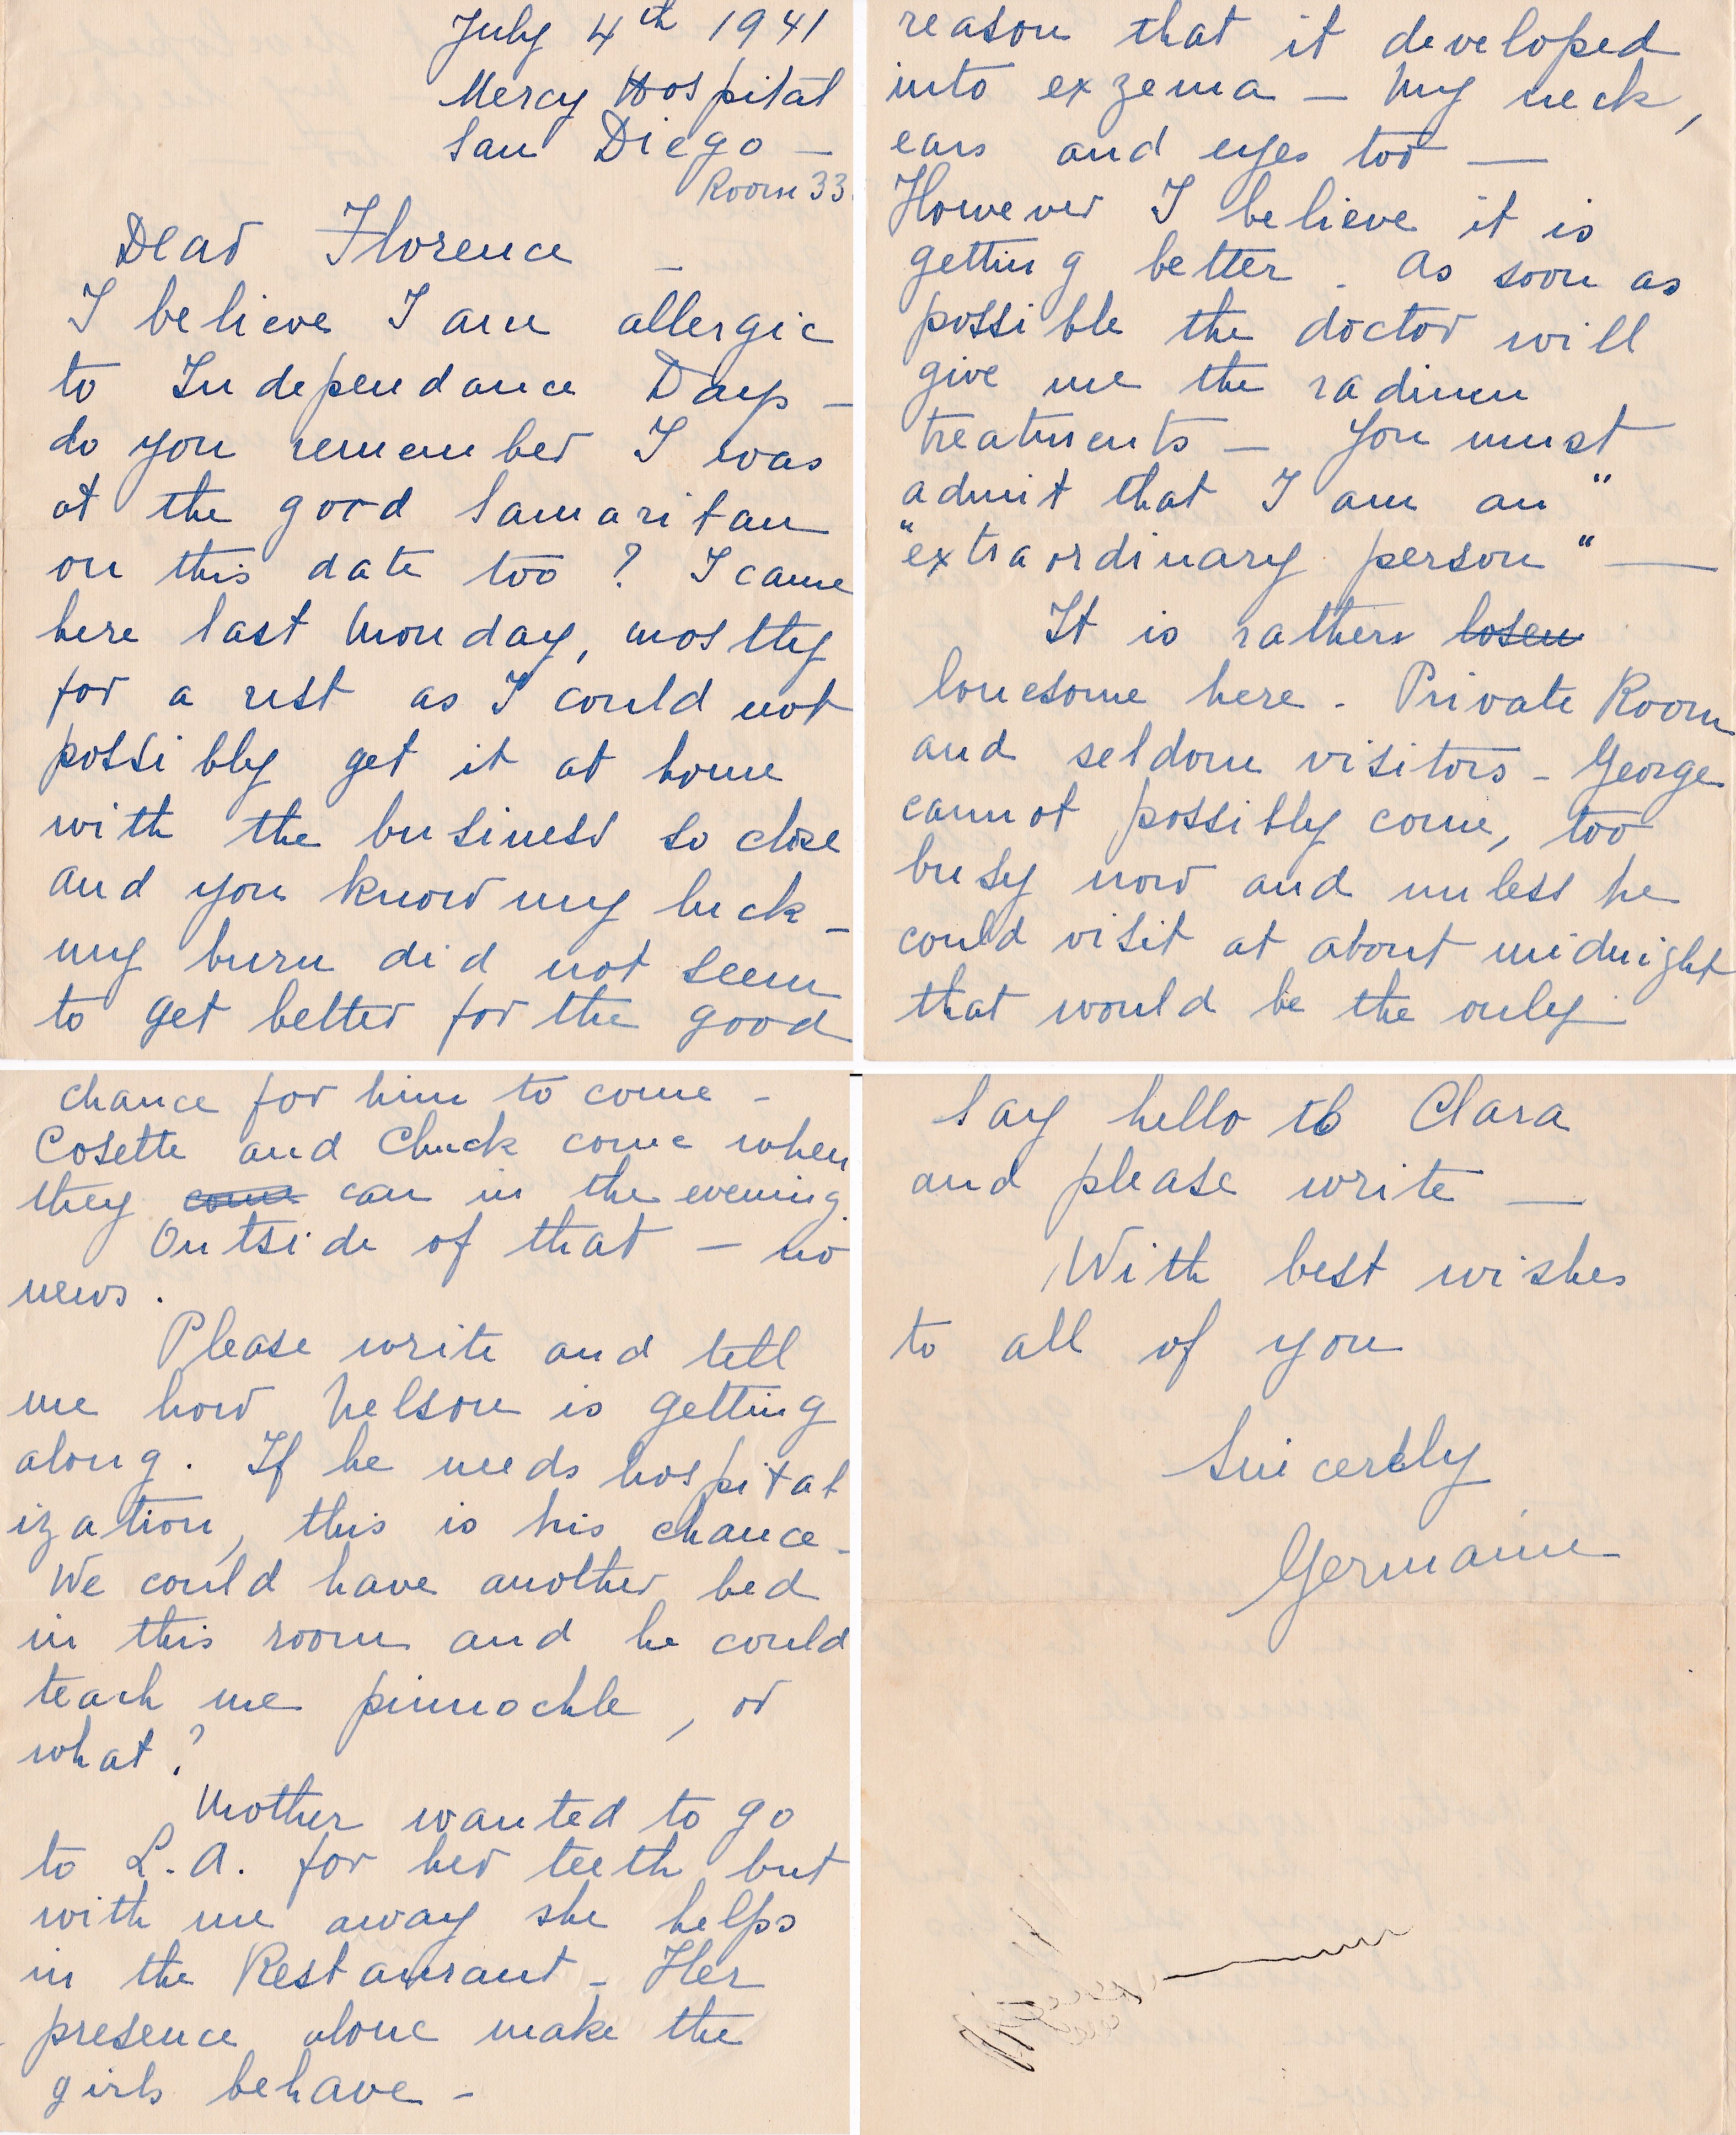 July 4th 1941
Mercy Hospital
San Diego —
Room 33
Dear Florence —
I believe I am allergic
to Independance Day —
do you remember I was
at the good Samaritan
on this date too? I came
here last Monday, mostly
for a rest as I could not
possibly get it at home
with the business so close
and you know my luck —
my burn did not seem
to get better for the good
reason that it developed
into exzema — My neck,
ears and eyes too —
However I believe it is
getting better. As soon as
possible the doctor will
give me the radium
treatments — You must
admit that I am an "
"extraordinary person" —
It is rather losen
lonesome here. Private Room
and seldom visitors — George
cannot possibly come, too
busy now and unless he
could visit at about midnight
that would be the only
chance for him to come —
Cosette and Chuck come when
they come can in the evening.
Outside of that — no
news.
Please write and tell
me how Nelson is getting
along. If he needs hospital
ization, this is his chance —
We could have another bed
in this room and he could
teach me pinnochle, or
what?
Mother wanted to go
to L.A. for her teeth but
with me away she helps
in the Restaurant — Her
presence alone make the
girls behave —
Say hello to Clara
and please write —
With best wishes
to all of you
Sincerely
Germaine